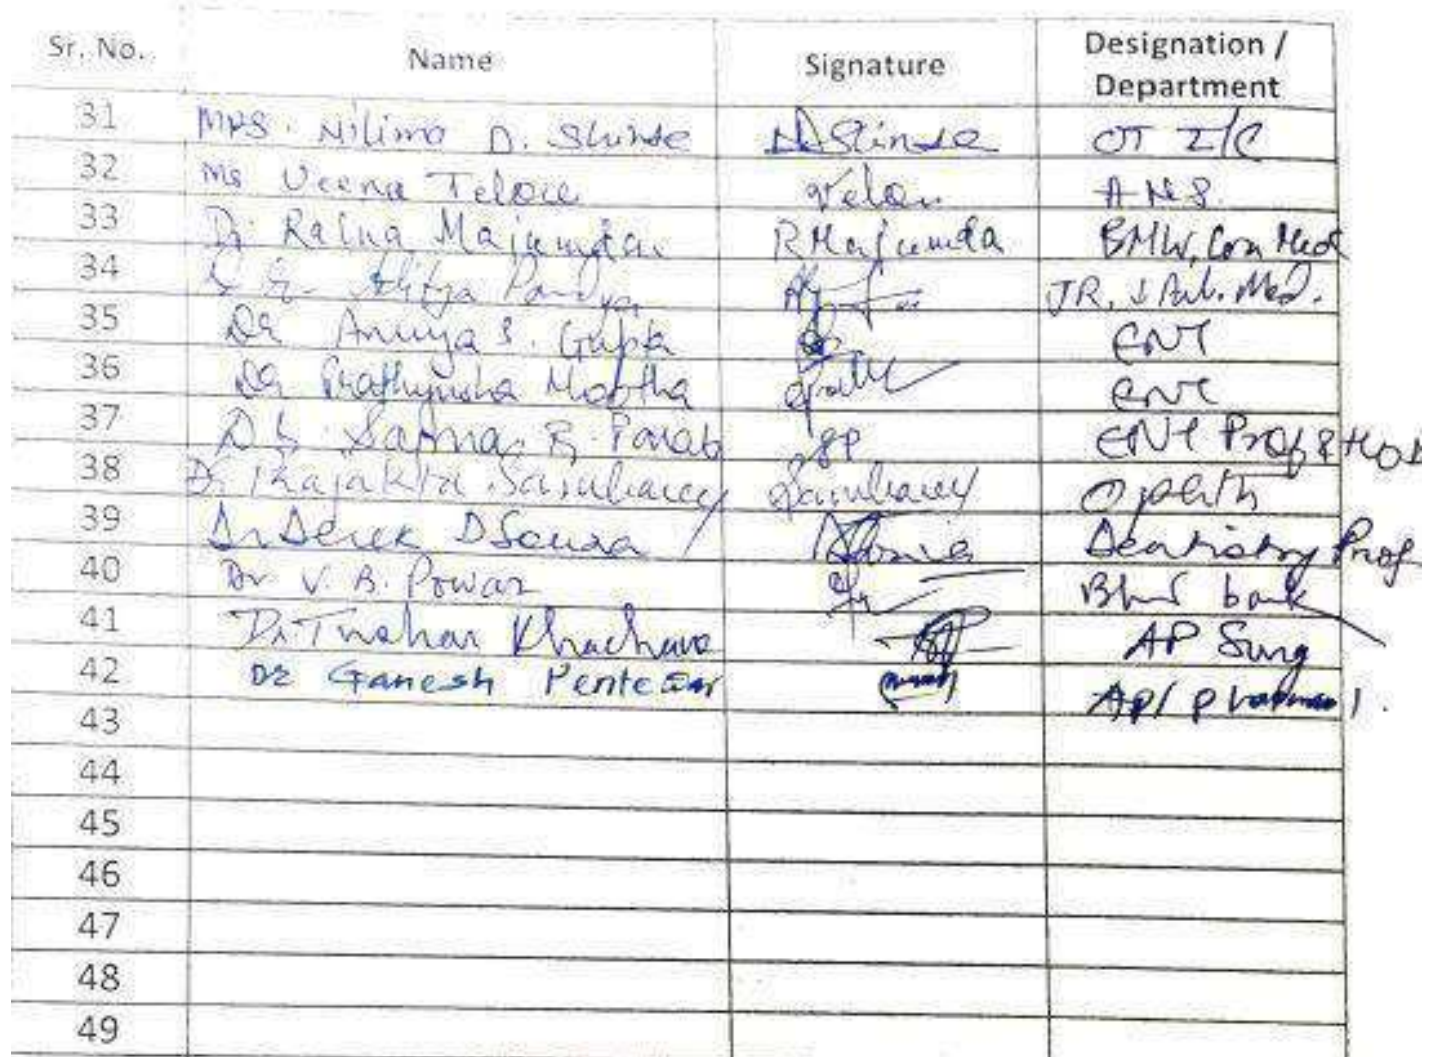 Sr. No. Name Signature Designation / Department
31 Mrs. Nilima D. Shinde NDShinde OT I/C
32 Ms Veena Telore Velor A.N.S.
33 Dr Raina Majumdar RMajumda BMW, Com Med
34 Aditya Pandya JR,
35 Dr Anuya S. Gupta ENT
36 Dr Mootha ENT
37 Dr. Sapna R. Parab SP ENT Prof & HOD
38 Dr. Prajakta Sambarey Sambarey Ophth
39 Dr Derek DSouza Dentistry Prof
40 Dr V. B. Powar Blood bank
41 Dr. Tushar Khachane AP Surg
42 Dr Ganesh AP/
43
44
45
46
47
48
49